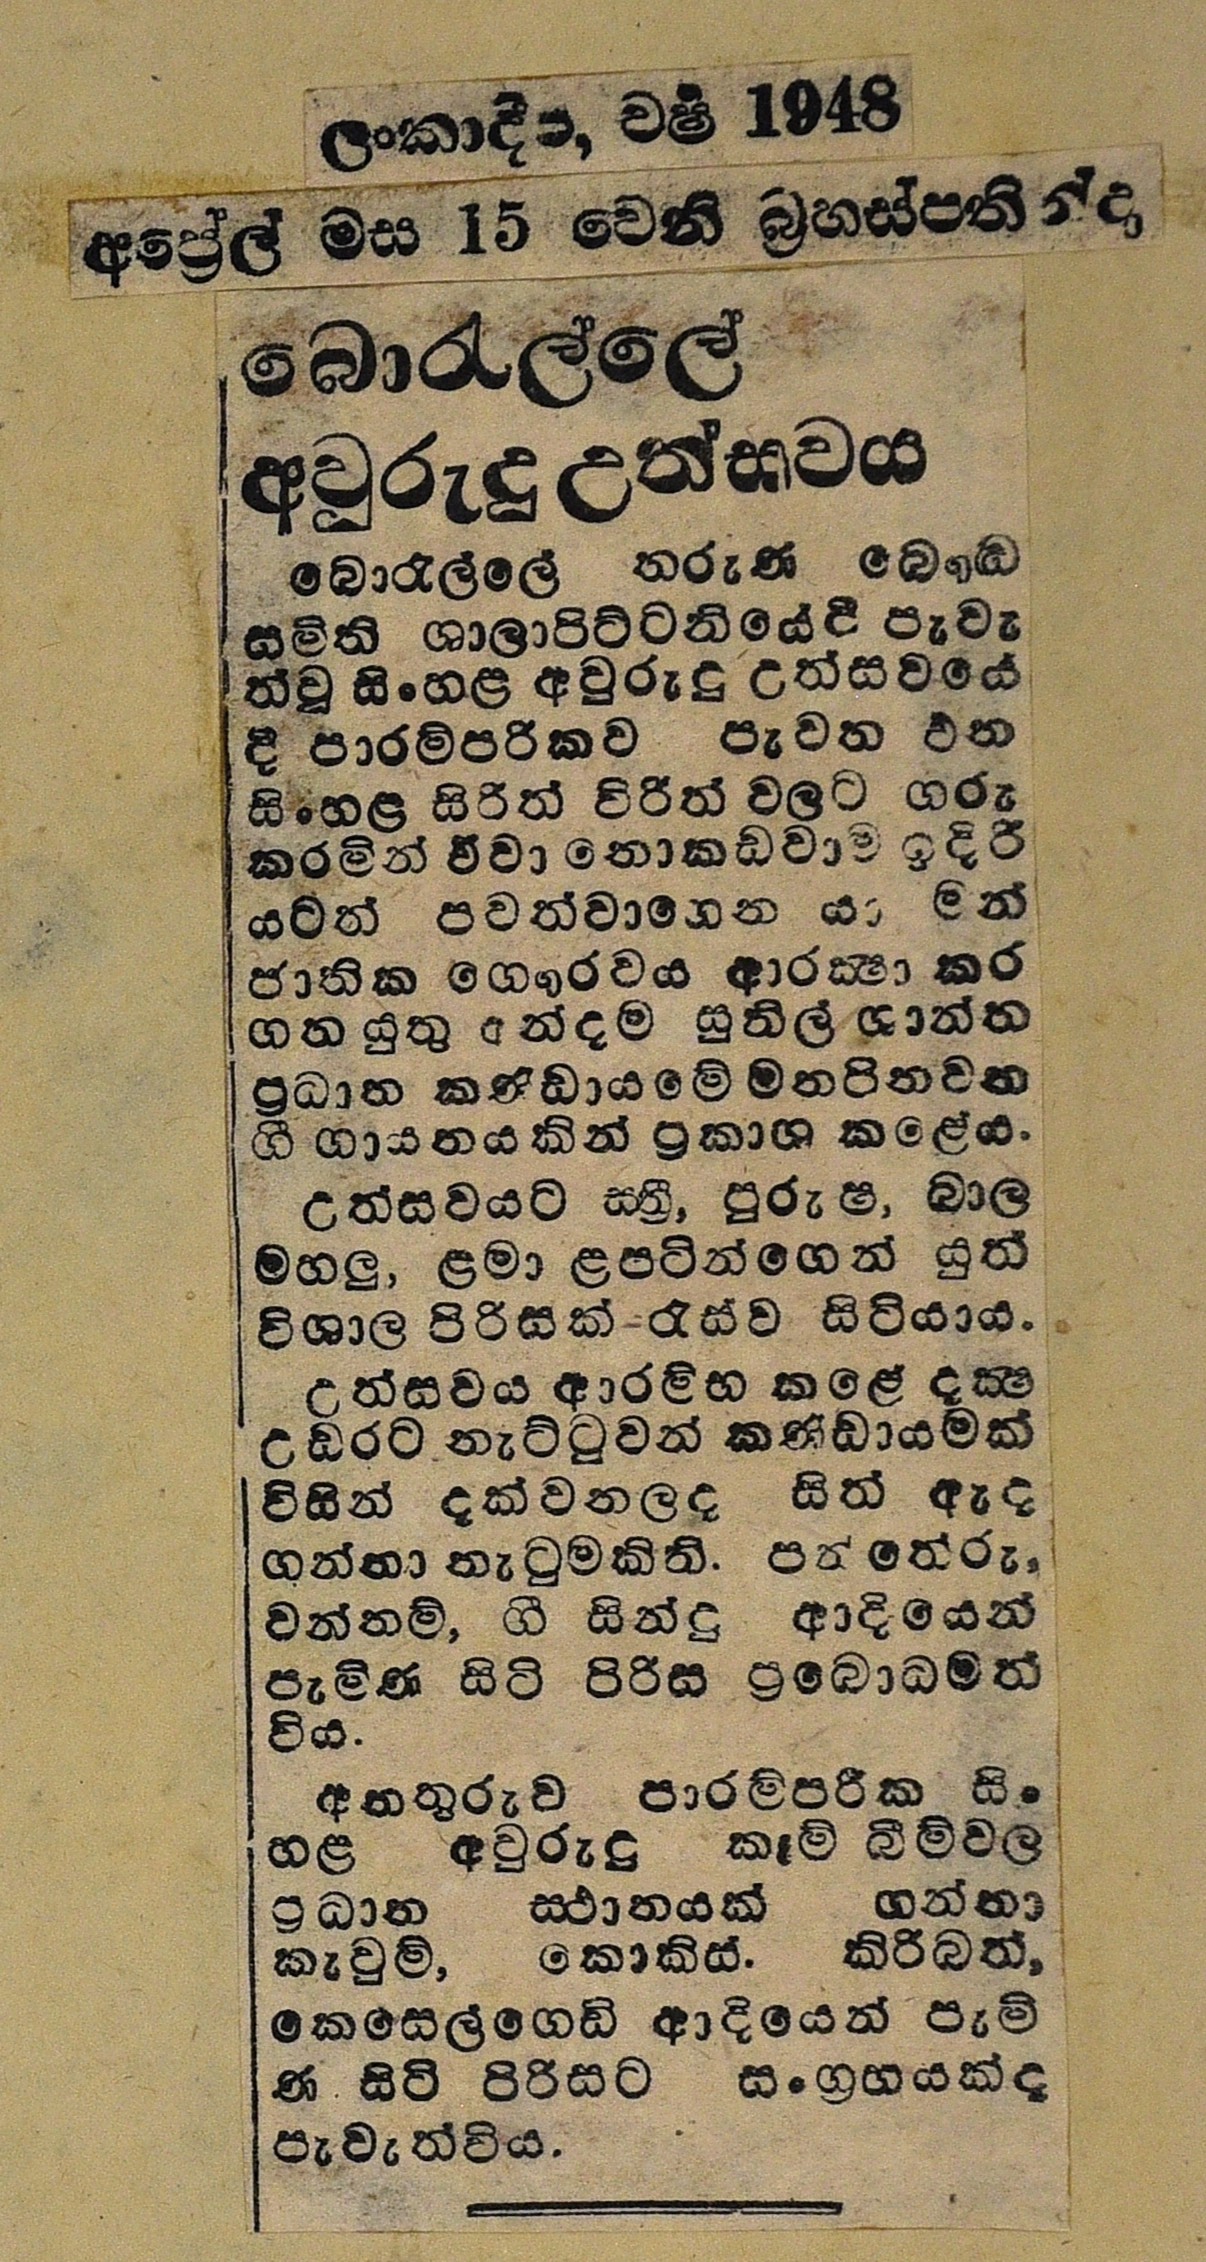 ලංකාදීප, වර්ෂ 1948
අප්‍රේල් මස 15 වෙනි බ්‍රහස්පතින්දා
බොරැල්ලේ
අවුරුදු උත්සවය
බොරැල්ලේ තරුණ බෞඬ
සමිති ශාලාපිට්ටනියේදී පැවැ
ත්වූ සිංහළ අවුරුදු උත්සවයේ
දී පාරම්පරිකව පැවත එන
සිංහළ සිරිත් විරිත් වලට ගරු
කරමින් ඒවා නොකඩවාම ඉදිරි
යටත් පවත්වාගෙන යාමින්
ජාතික ගෞරවය ආරක්‍ෂා කර
ගතයුතු අන්දම සුනිල් ශාන්ත
ප්‍රධාන කණ්ඩායමේ මනපිනවන
ගී ගායනයකින් ප්‍රකාශ කළේය.
උත්සවයට ස්ත්‍රී, පුරුෂ, බාල
මහලු, ළමා ළපටින්ගෙන් යුත්
විශාල පිරිසක් රැස්ව සිටියාය.
උත්සවය ආරම්භ කළේ දක්‍ෂ
උඩරට නැට්ටුවන් කණ්ඩායමක්
විසින් දක්වනලද සිත් ඇද
ගන්නා නැටුමකිනි. පන්තේරු,
වන්නම්, ගී සින්දු ආදියෙන්
පැමිණ සිටි පිරිස ප්‍රබොධමත්
විය.
අනතුරුව පාරම්පරික සිං
හළ අවුරුදු කෑම් බීම්වල
ප්‍රධාන ස්ථානයක් ගන්නා
කැවුම්, කොකිස්. කිරිබත්,
කෙසෙල්ගෙඩි ආදියෙන් පැමි
ණ සිටි පිරිසට සංග්‍රහයක්ද
පැවැත්විය.